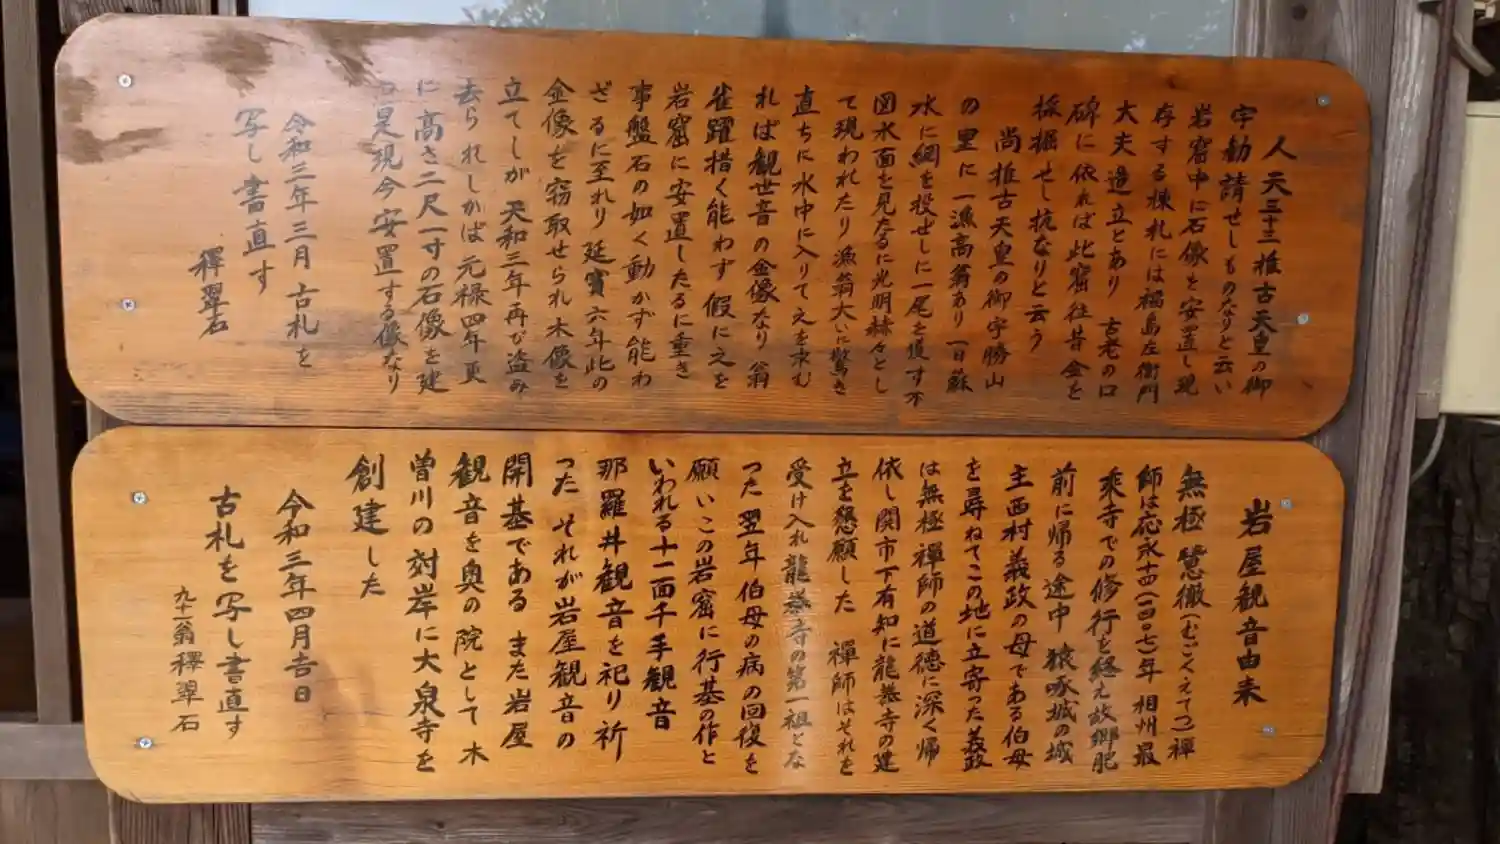 人天三十三推古天皇の御
宇勧請せしものなりと云い
岩窟中に石像を安置し現
存する棟札には福島左衛門
大夫造立とあり 古老の口
碑に依れば此窟往昔金を
採掘せし抗なりと云う
尚推古天皇の御宇勝山
の里に一漁高翁あり一日蘇
水に網を投ぜしに一尾を獲す不
図水面を見たるに光明赫々とし
て現われたり漁翁大いに驚き
直ちに水中に入りて之を求む
れば観世音の金像なり 翁
雀躍措く能わず假に之を
岩窟に安置したるに重き
事盤石の如く動かず能わ
ざるに至れり延寶六年此の
金像を窃取せられ木像を
立てしが天和三年再び盗み
去られしかば元禄四年更
に高さ二尺一寸の石像を建
つ是現今安置する像なり
令和三年三月古札を
写し書直す
釋翠石
岩屋観音由来
無極慧徹(むごくえてつ)禅
師は応永十四(一四〇七)年 相州最
乗寺での修行を終え故郷肥
前に帰る途中 猿啄城の城
主西村義政の母である伯母
を尋ねてこの地に立寄った義政
は無極禅師の道徳に深く帰
依し関市下有知に龍泰寺の建
立を懇願した 禅師はそれを
受け入れ龍泰寺の第一祖とな
った翌年伯母の病の回復を
願いこの岩窟に行基の作と
いわれる十一面千手観音
那羅井観音を祀り祈
った それが岩屋観音の
開基である また岩屋
観音を奥の院として木
曽川の対岸に大泉寺を
創建した
令和三年四月吉日
古札を写し書直す
九十一翁釋翠石